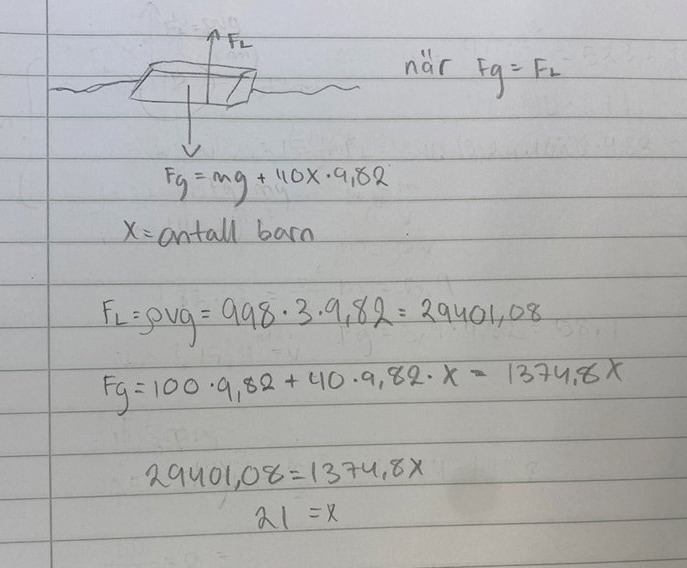 FL
när Fg = FL
Fg = mg + 40x · 9,82
x = antall barn
FL = ρVg = 998 · 3 · 9,82 = 29401,08
Fg = 100 · 9,82 + 40 · 9,82 · x = 1374,8x
29401,08 = 1374,8x
21 = x